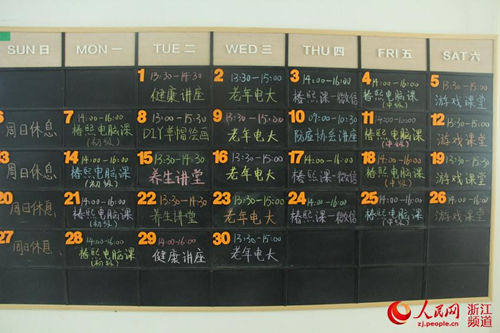 SUN 日 MON 一 TUE 二 WED 三 THU 四 FRI 五 SAT 六
1 2 3 4 5
13:30-14:30 13:30-15:00 14:00-16:00 14:00-16:00 13:30-15:00
健康讲座 老年电大 椿熙课—微信 椿熙电脑课 游戏课堂
(中级)
6 7 8 9 10 11 12
周日休息 14:00-16:00 13:30-14:30 13:30-15:00 09:00-10:30 14:00-16:00 13:30-15:00
椿熙电脑课 DIY草帽绘画 老年电大 防癌协会讲座 椿熙电脑课 游戏课堂
(初级) (中级)
13 14 15 16 17 18 19
周日休息 14:00-16:00 13:30-14:30 13:30-15:00 14:00-16:00 14:00-16:00 13:30-15:00
椿熙电脑课 养生讲堂 老年电大 椿熙课—微信 椿熙电脑课 游戏课堂
(初级) (中级)
20 21 22 23 24 25 26
周日休息 14:00-16:00 13:30-14:30 13:30-15:00 14:00-16:00 14:00-16:00 13:30-15:00
椿熙电脑课 养生讲堂 老年电大 椿熙课—微信 椿熙电脑课 游戏课堂
(初级) (中级)
27 28 29 30
周日休息 14:00-16:00 14:00-16:00 13:30-15:00
椿熙电脑课 健康讲座 老年电大
(初级)
人民网 浙江
zj.people.cn 频道